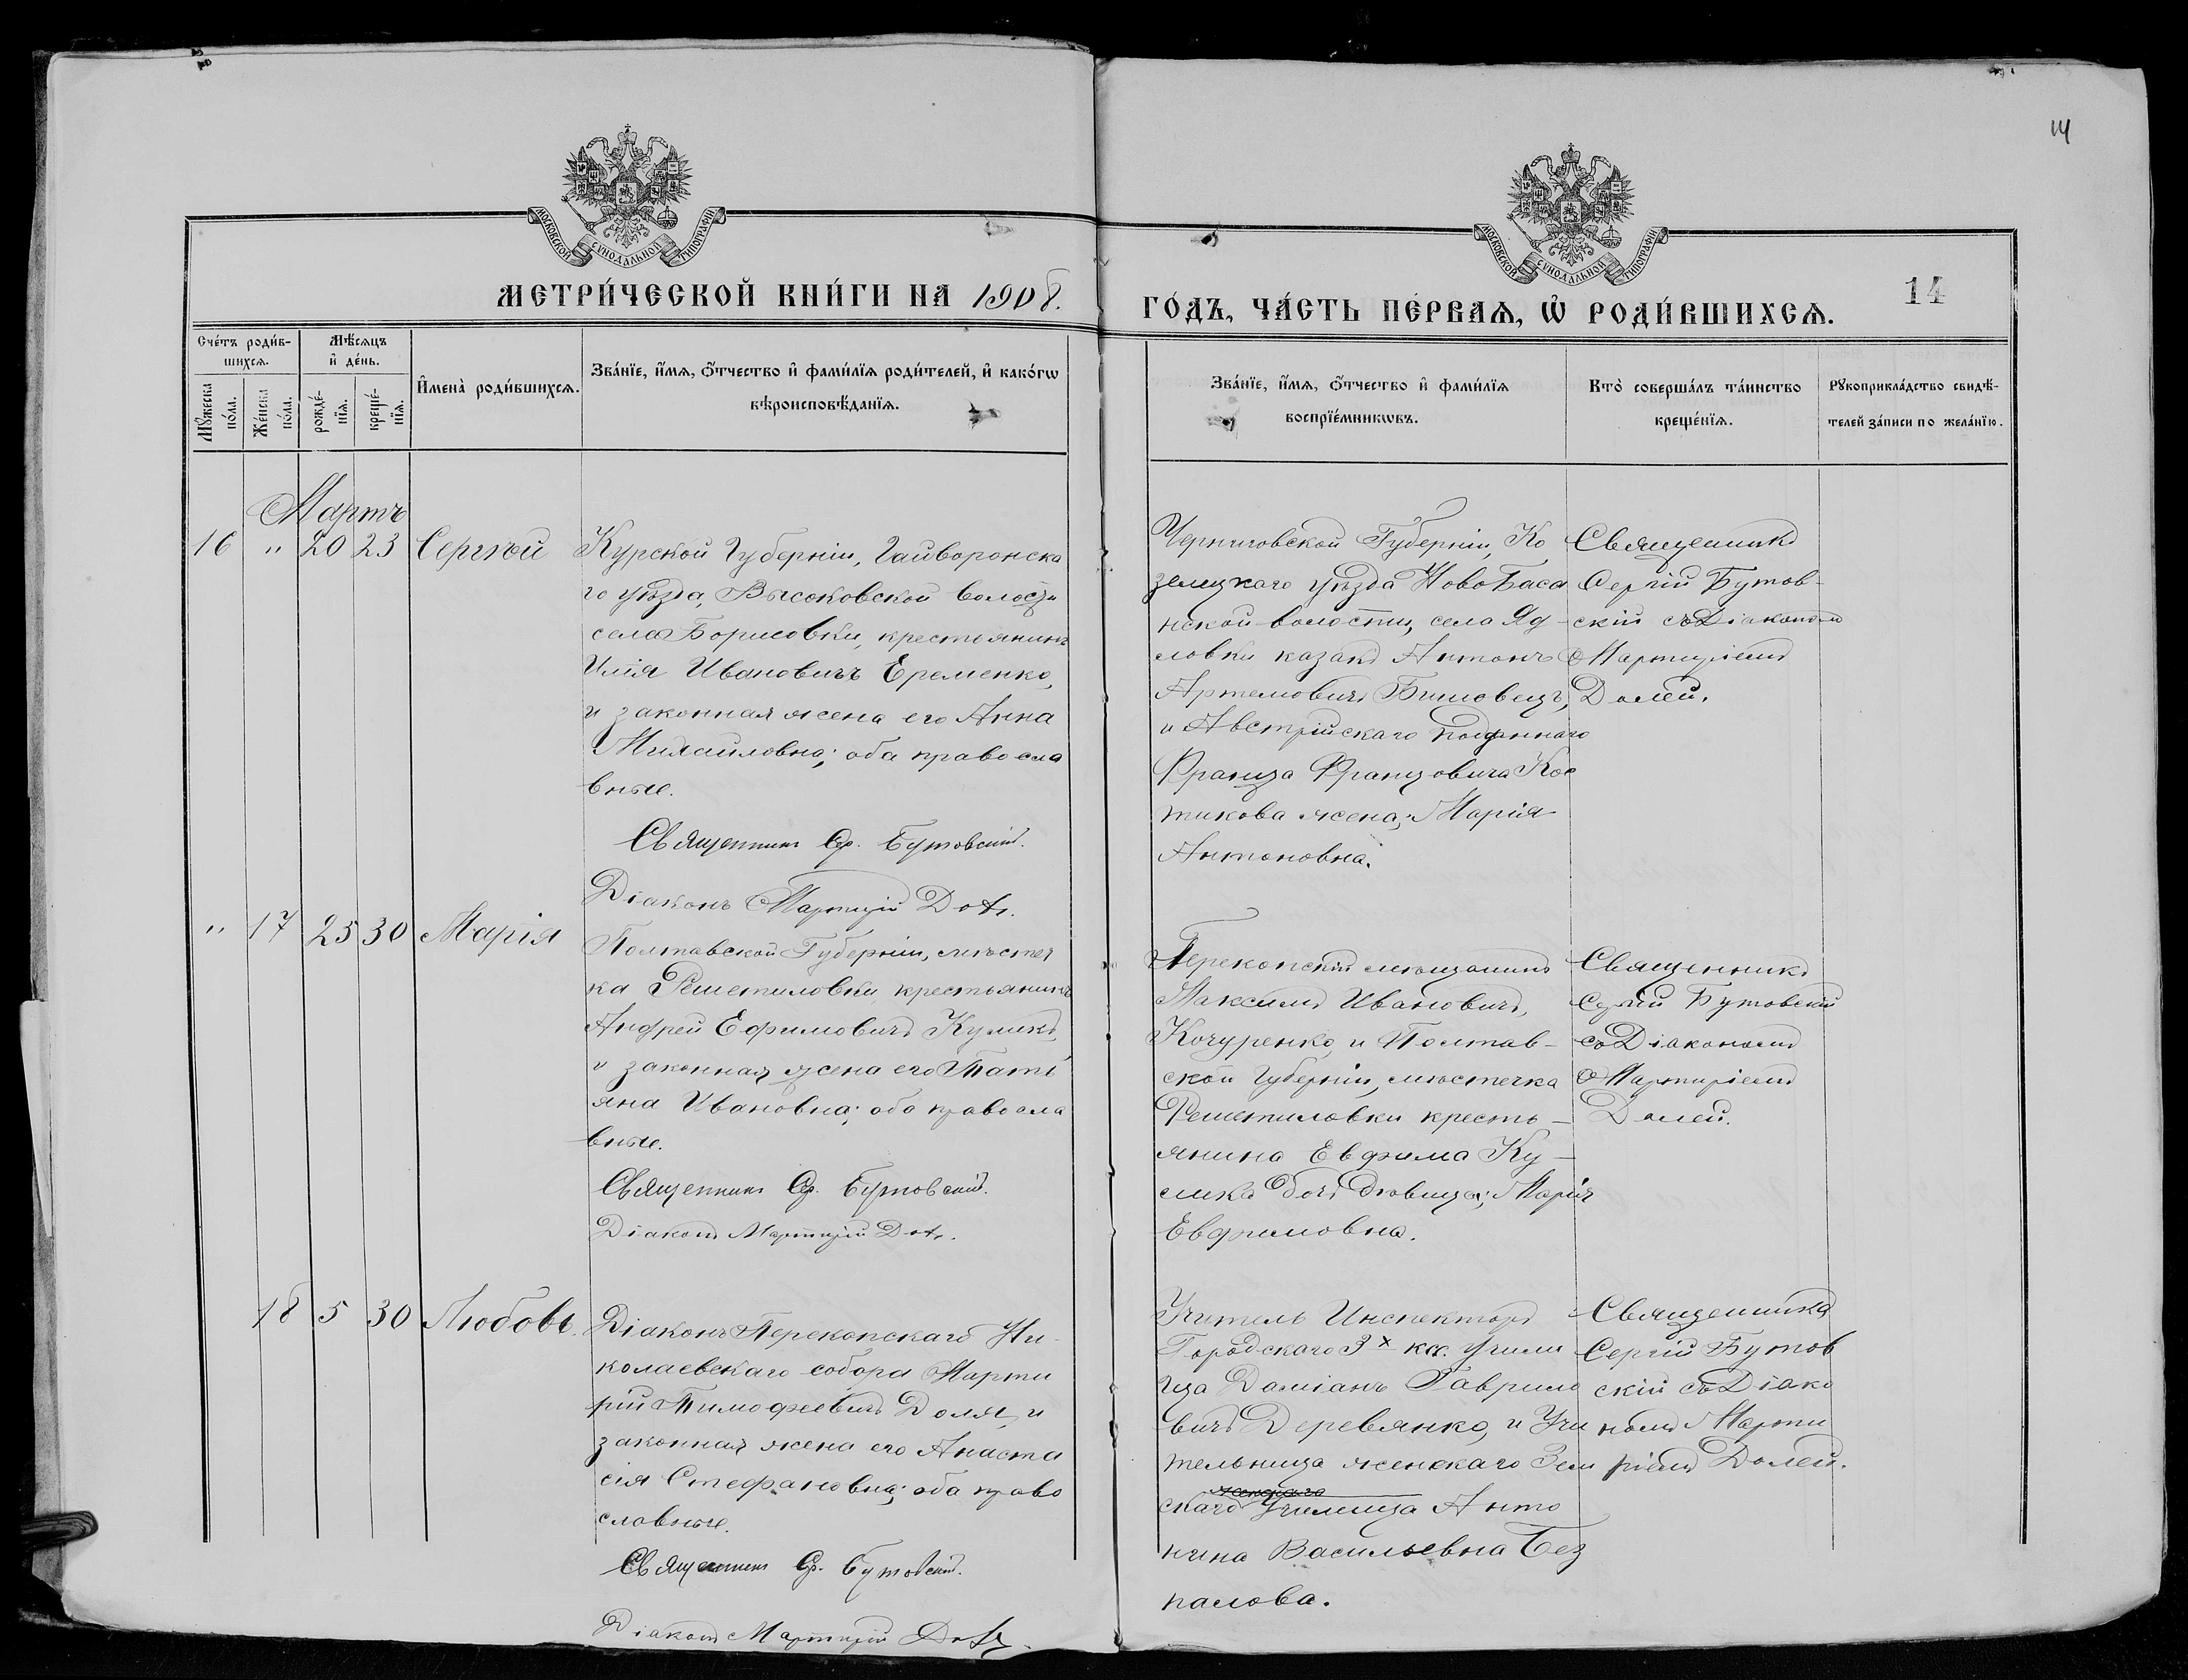 14
МОСКОВСКОЙ СѴНОДАЛЬНОЙ ТИПОГРАФІИ
МОСКОВСКОЙ СѴНОДАЛЬНОЙ ТИПОГРАФІИ
МЕТРИ́ЧЕСКОЙ КНИ́ГИ НА 1908.
ГО́ДЪ, ЧА́СТЬ ПЕ́РВАѦ, Ѡ҆ РОДИ́ВШИХСѦ.
14
Сче́тъ роди́в-
шихсѧ.
Мѣ́сѧцъ
и҆ де́нь.
Мꙋ́жеска
по́ла.
Же́нска
по́ла.
рожде́-
нїѧ.
креще́-
нїѧ.
И҆мена̀ роди́вшихсѧ.
Зва́нїе, и҆́мѧ, ѻ҆́тчество и҆ фами́лїѧ роди́телей, и҆ како́гѡ
вѣроисповѣ́данїѧ.
Зва́нїе, и҆́мѧ, ѻ҆́тчество и҆ фами́лїѧ
воспрїе́мникѡвъ.
Кто̀ соверша́лъ та́инство
креще́нїѧ.
Рꙋкоприкла́дство свидѣ́-
телей за́писи по жела́нїю.
Мартъ
16 " 20 23 Сергѣй
Курской Губерніи, Гайворонска
го уѣзда, Высоковской волости
села Борисовки, крестьянинъ
Илія Ивановичъ Еременко,
и законная жена его Анна
Михаиловна; оба правосла
вные.
Священникъ Ср. Бутовскій.
Діаконъ Мартирій Доля.
Черниговской Губерніи, Ко
зелецкаго уѣзда НовоБаса
нской волости, села Яд-
ловки казакъ Антонъ
Артемовичъ
и Австрійскаго подданнаго
Франца Францовича Кос
тикова жена, Марія
Антоновна.
Священникъ
Сергій Бутов-
скій съ Діакономъ
Мартиріемъ
Долей.
" 17 25 30 Марія
Полтавской Губерніи, мѣстеч
ка Решетиловки крестьянинъ
Андрей Ефимовичъ Куликъ,
и законная жена его Тать
яна Ивановна; оба правосла
вные.
Священникъ Ср. Бутовскій.
Діаконъ Мартирій Доля.
Перекопскій мѣщанинъ
Максимъ Ивановичъ
Кочуренко, и Полтав-
ской Губерніи, мѣстечка
Решетиловки кресть-
янина Евфима Ку-
лика дочь дѣвица; Марія
Евфимовна.
Священникъ
Сергій Бутовскій
съ Діакономъ
Мартиріемъ
Долей.
18 5 30 Любовь.
Діаконъ Перекопскаго Ни-
колаевскаго собора Марти
рій Тимофеевичъ Доля, и
законная жена его Анаста
сія Стефановна; оба право
славные.
Священникъ Ср. Бутовскій.
Діаконъ Мартирій Доля.
Учитель Инспекторъ
Городскаго 3х кл. Учили
ща Даміанъ Гаврило
вичъ Деревянко, и Учи
тельница женскаго Зем
женскаго
скаго Училища Анто
нина Васильевна Без
палова.
Священникъ
Сергій Бутов
скій съ Діако
номъ Марти
ріемъ Долей.